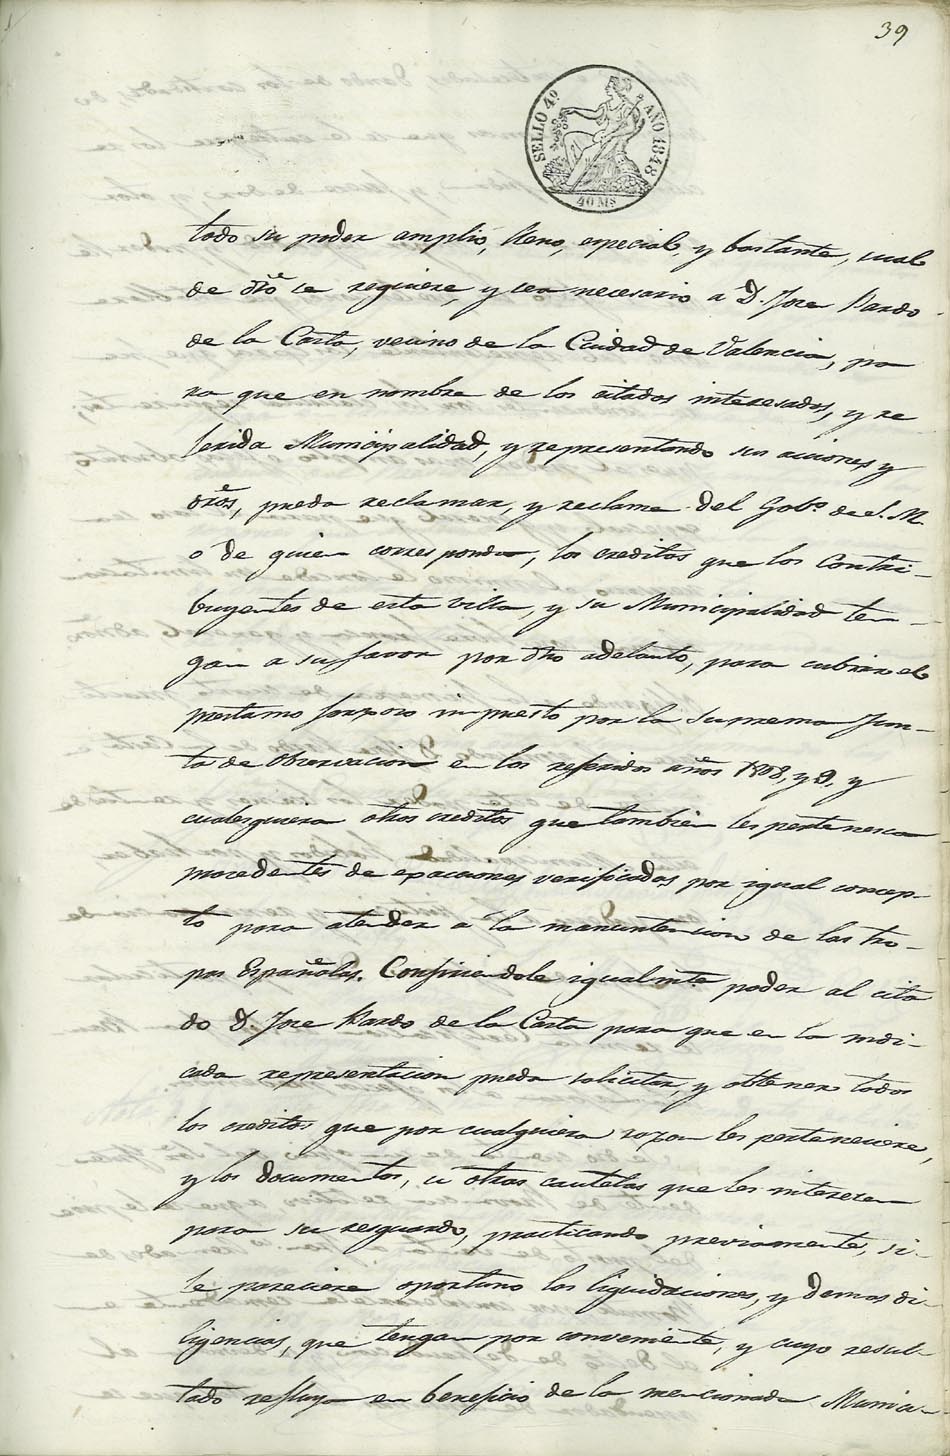 39
SELLO 4º AÑO 1848
40 Ms
todo su poder amplio, lleno, especial, y bastante, cual
de dro se requiere, y sea necesario a D. Jose Pardo
de la Casta, vecino de la Ciudad de Valencia, pa
ra que en nombre de los citados interesados, y re
ferida Municipalidad, y representando sus acciones y
dros, pueda reclamar, y reclame del Gobº. de S. M.
o de quien corresponda, los creditos que los Contri-
buyentes de esta villa, y su Municipalidad ten-
gan a su favor por dho adelanto, para cubrir el
prestamo forzoso impuesto por la Suprema Jun-
ta de Observacion en los referidos años 1808, y 9, y
cualesquiera otros creditos que tambien les pertenesca
procedentes de exacciones verificadas por igual concep-
to para atender a la manuntencion de las tro-
pas Españolas. Confiriendole igualmte. poder al cita
do D. Jose Pardo de la Casta para que en la indi-
cada representacion pueda solicitar, y obtener todos
los creditos que por cualquiera razon les perteneciere,
y los documentos, u otras cautelas que les interesen
para su resguardo, practicando previamente, si-
le pareciere oportuno las liquidaciones, y demas di-
ligencias, que tenga por conveniente, y cuyo resul-
tado refluya en beneficio de la mencionada Munici-